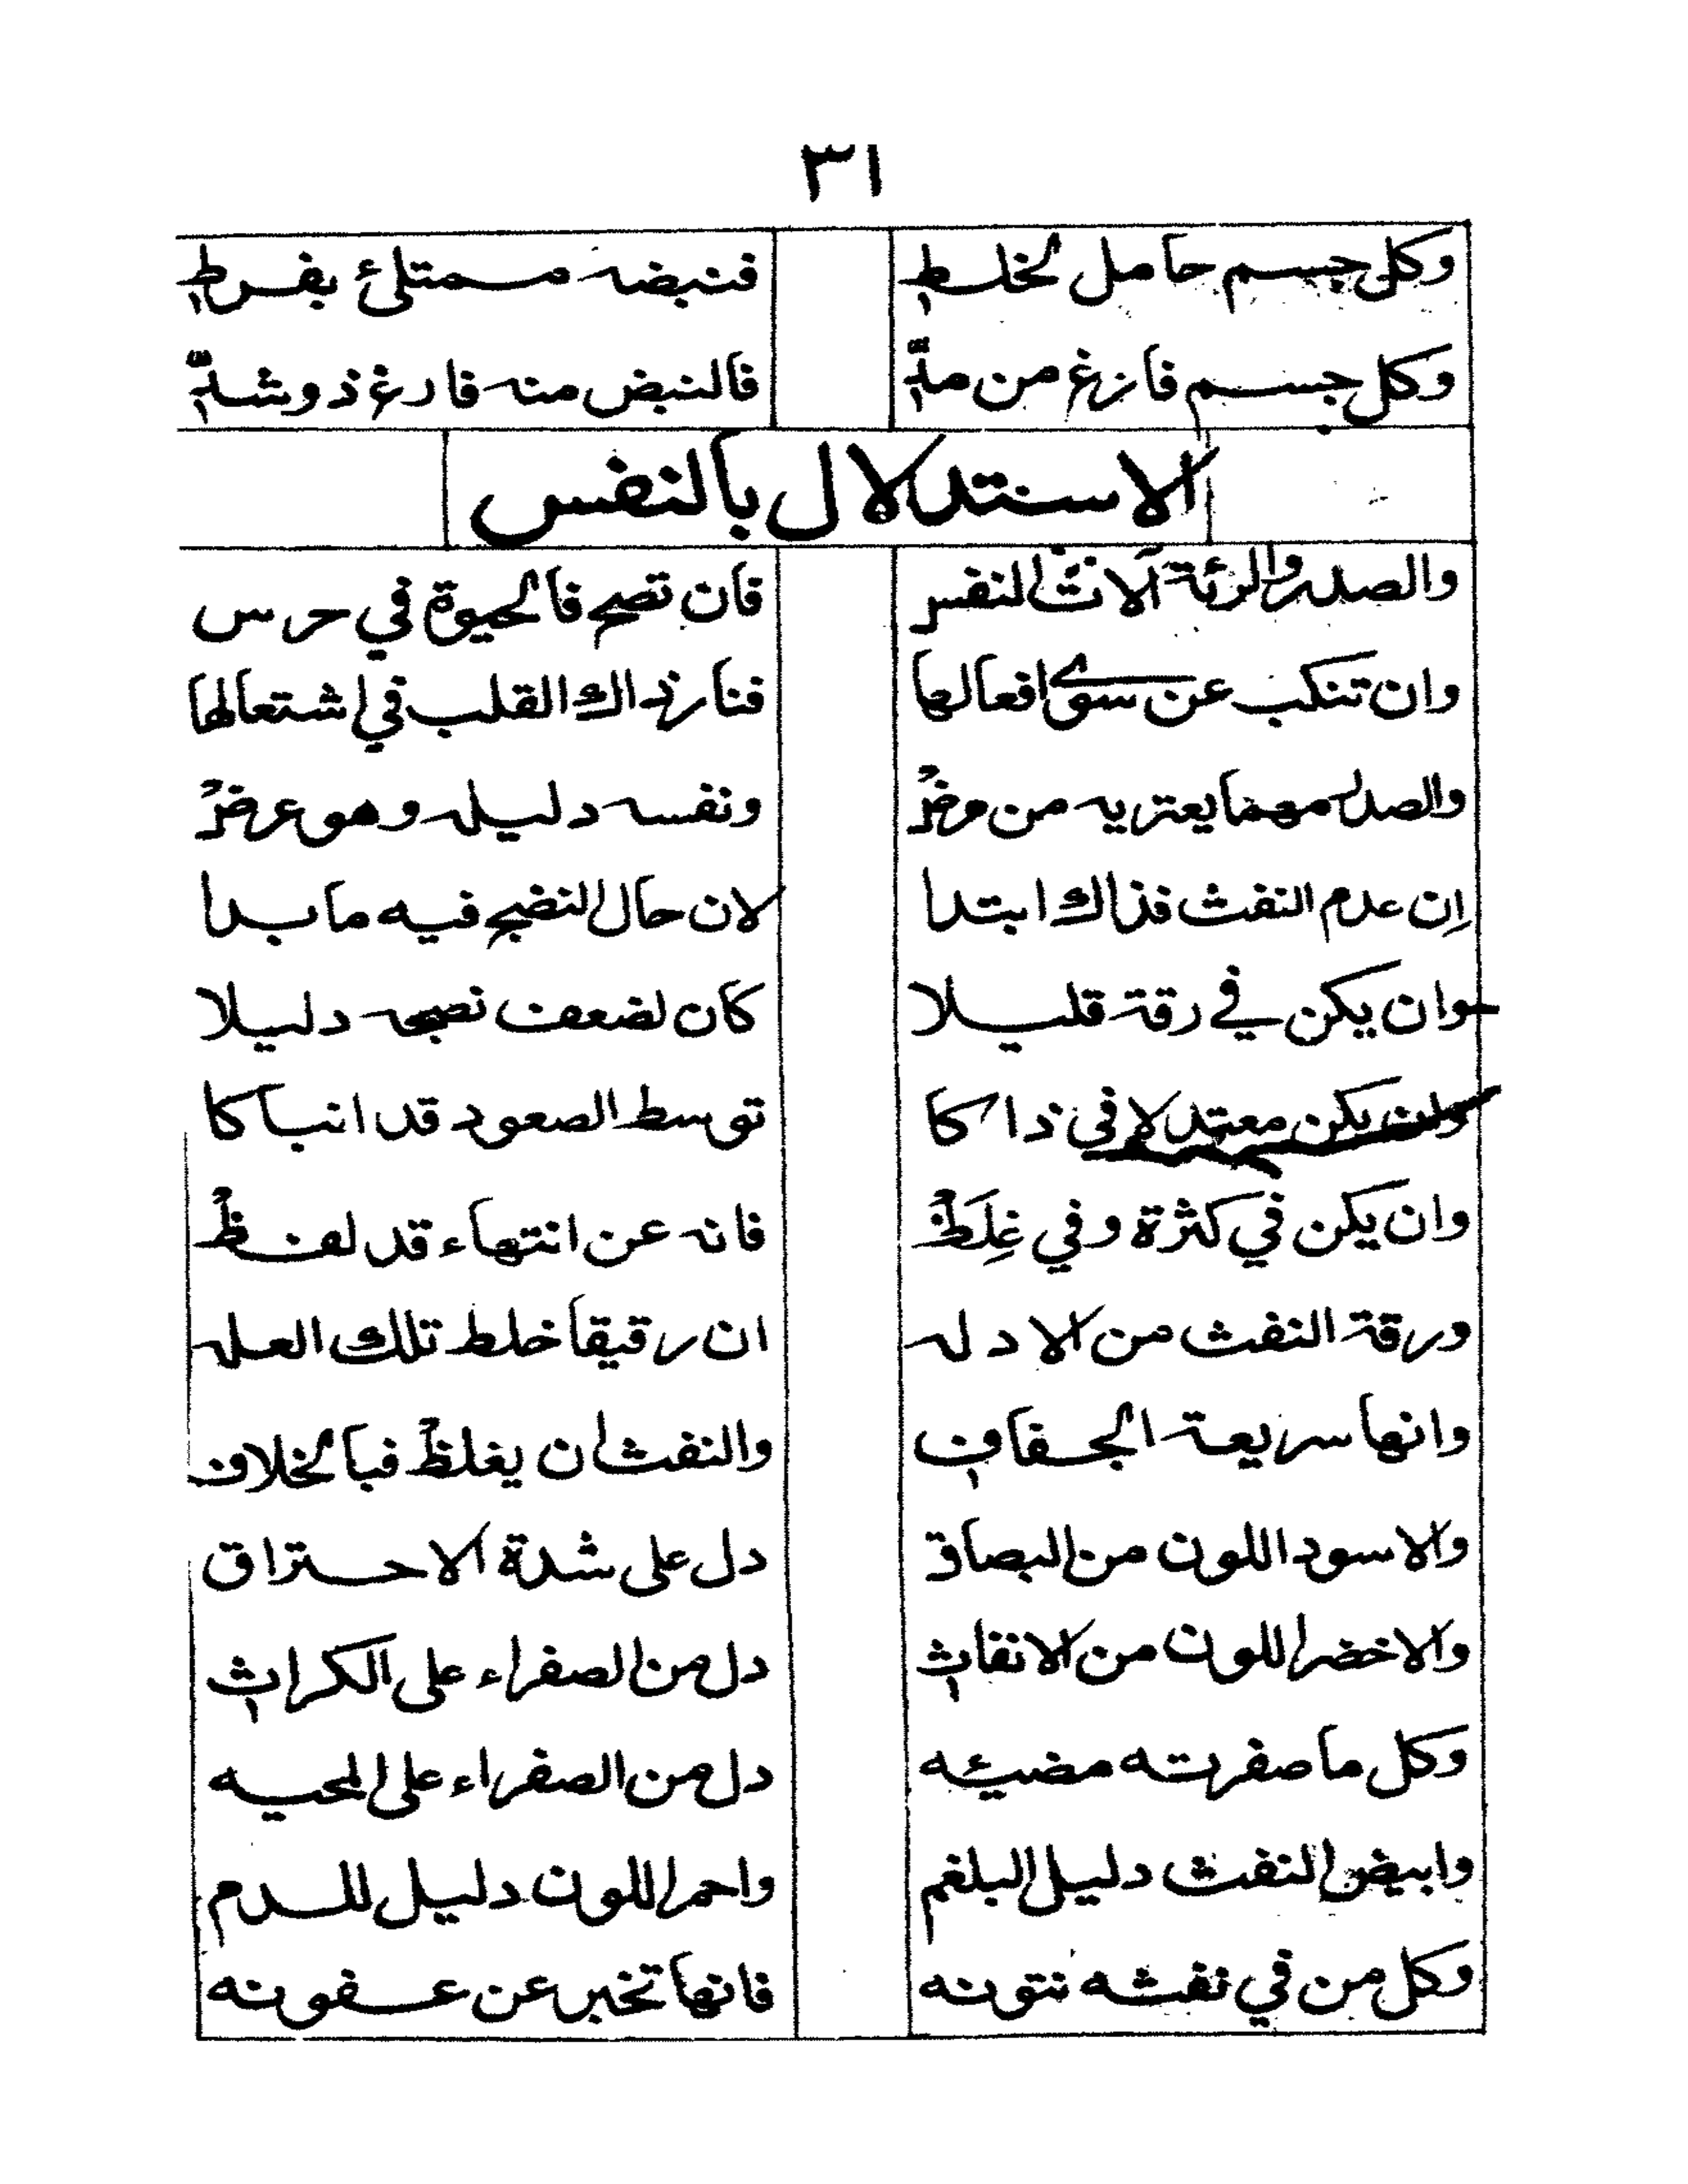 ٣١
وكل جسم حامل لخلط فنبضه ممتلئ بفرط
وكل جسم فارغ من مدّة فالنبض منه فارغ ذو شدّة
الاستدلال بالنفس
والصدر والرئة آلات النفس فان تصح فالحيوة في حرس
وان تنكب عن سوى افعالها فنار ذاك القلب في اشتعالها
والصدر مهما يعتريه من مرض ونفسه دليله وهو عرض
ان عدم النفث فذاك ابتدا لان حال النضج فيه ما بدا
وان يكن في رقة قليلا كان لضعف نضجه دليلا
وان يكن معتدلا في ذاكا توسط الصعود قد انباكا
وان يكن في كثرة وفي غِلَظْ فانه عن انتهاء قد لفظْ
ورقة النفث من الادله ان رقيقا خلط تلك العله
وانها سريعة الجفاف والنفث ان يغلظْ فبالخلاف
والاسود اللون من البصاق دل على شدة الاحتراق
والاخضر اللون من الانفاث دل من الصفراء على الكراث
وكل ما صفرته مضيئه دل من الصفراء على المحيه
وابيض النفث دليل البلغم واحمر اللون دليل للدم
وكل من في نفثه نتونه فانها تخبر عن عفونه